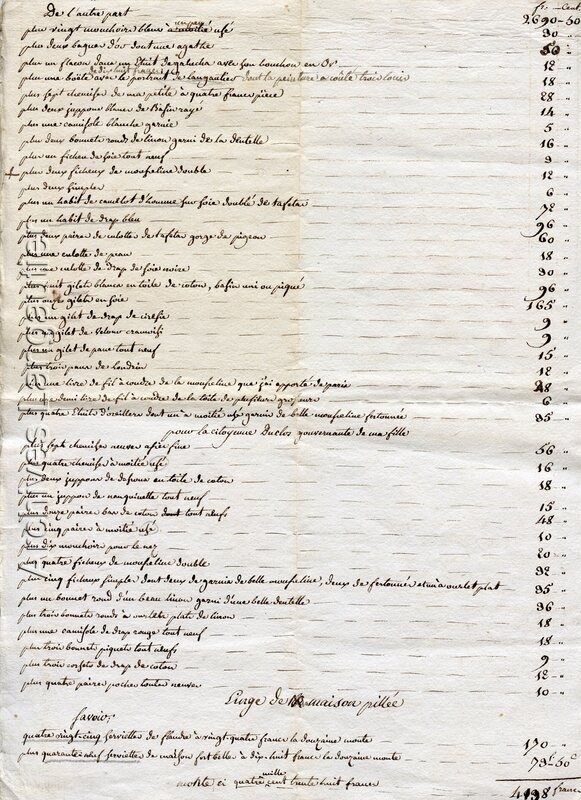 De l'autre part fr. Cent. 2690-50
plus vingt mouchoirs bleus à un peu moitié usé 30 "
plus deux bagues d'or dont une agathe 50 "
plus un flacon dans un Etuit de galuchat avec son bouchon en Or 12 "
plus une boëte avec le portrait de Langautier dont la peinture a coûté trois louis de dix huit francs 18 "
plus sept chemises de ma petite à quatre francs pièce 28 "
plus deux juppons blancs de Basin rayé 14 "
plus une camisole blanche garnie 5 "
plus deux bonnets ronds de linon garni de la dentelle 16 "
plus un fichu de soie tout neuf 9 "
+ plus deux ficheux de mousseline double 12 "
plus deux simples 6 "
plus un habit de camelot d'homme sur soie doublé de tafetas 72 "
plus un habit de drap bleu 96 "
plus deux paires de culottes de tafetas gorge de pigeon 60 "
plus une culotte de peau 18 "
plus une culotte de drap de soie noire 30 "
plus huit gilets blancs en toile de coton, basin uni ou piqué 96 "
plus onze gilets en soie 165 "
plus un gilet de drap de 9 "
plus un gilet de velours cramoisi 9 "
plus un gilet de pane tout neuf 15 "
plus trois paires de 12 "
plus une livre de fil à coudre de la mousseline que j'ai apporté de paris 28 "
plus une demi livre de fil à coudre de la toile de plusieurs grosseurs 6 "
plus quatre Etuits d'oreillers dont un à moitié usé garnis de belle mousseline festonnée 35 "
pour la citoyenne Duclos gouvernante de ma fille
plus sept chemises neuves assès fine 56 "
plus quatre chemises à moitié usé 16 "
plus deux juppons de dessous en toile de coton 18 "
plus un juppon de nanquinette tout neuf 15 "
plus douze paires bas de coton dont tout neufs 48 "
plus cinq paires à moitié usé 10 "
plus dix mouchoirs pour le nez 20 "
plus quatre ficheux de mousseline double 32 "
plus cinq ficheux simples dont deux de garnis de belle mousseline, deux de festonnés et un à ourlet plat 35 "
plus un bonnet rond d'un beau linon garni d'une belle dentelle 36 "
plus trois bonnets ronds à ourlets plats de linon 18 "
plus une camisole de drap rouge tout neuf 18 "
plus trois bonnets piquets tout neufs 9 "
plus trois corsets de drap de coton 12 "
plus quatre paires poches toutes neuves 10 "
Linge de maison pillée
Savoir
quatre vingt cinq serviettes de flandre à vingt quatre francs la douzaine monte 170 "
plus quarante neuf serviettes de maison fort belles à dix huit francs la douzaine monte 73f-50c
monte ci quatre mille cent trente huit francs 4138 francs
GEAUDEL